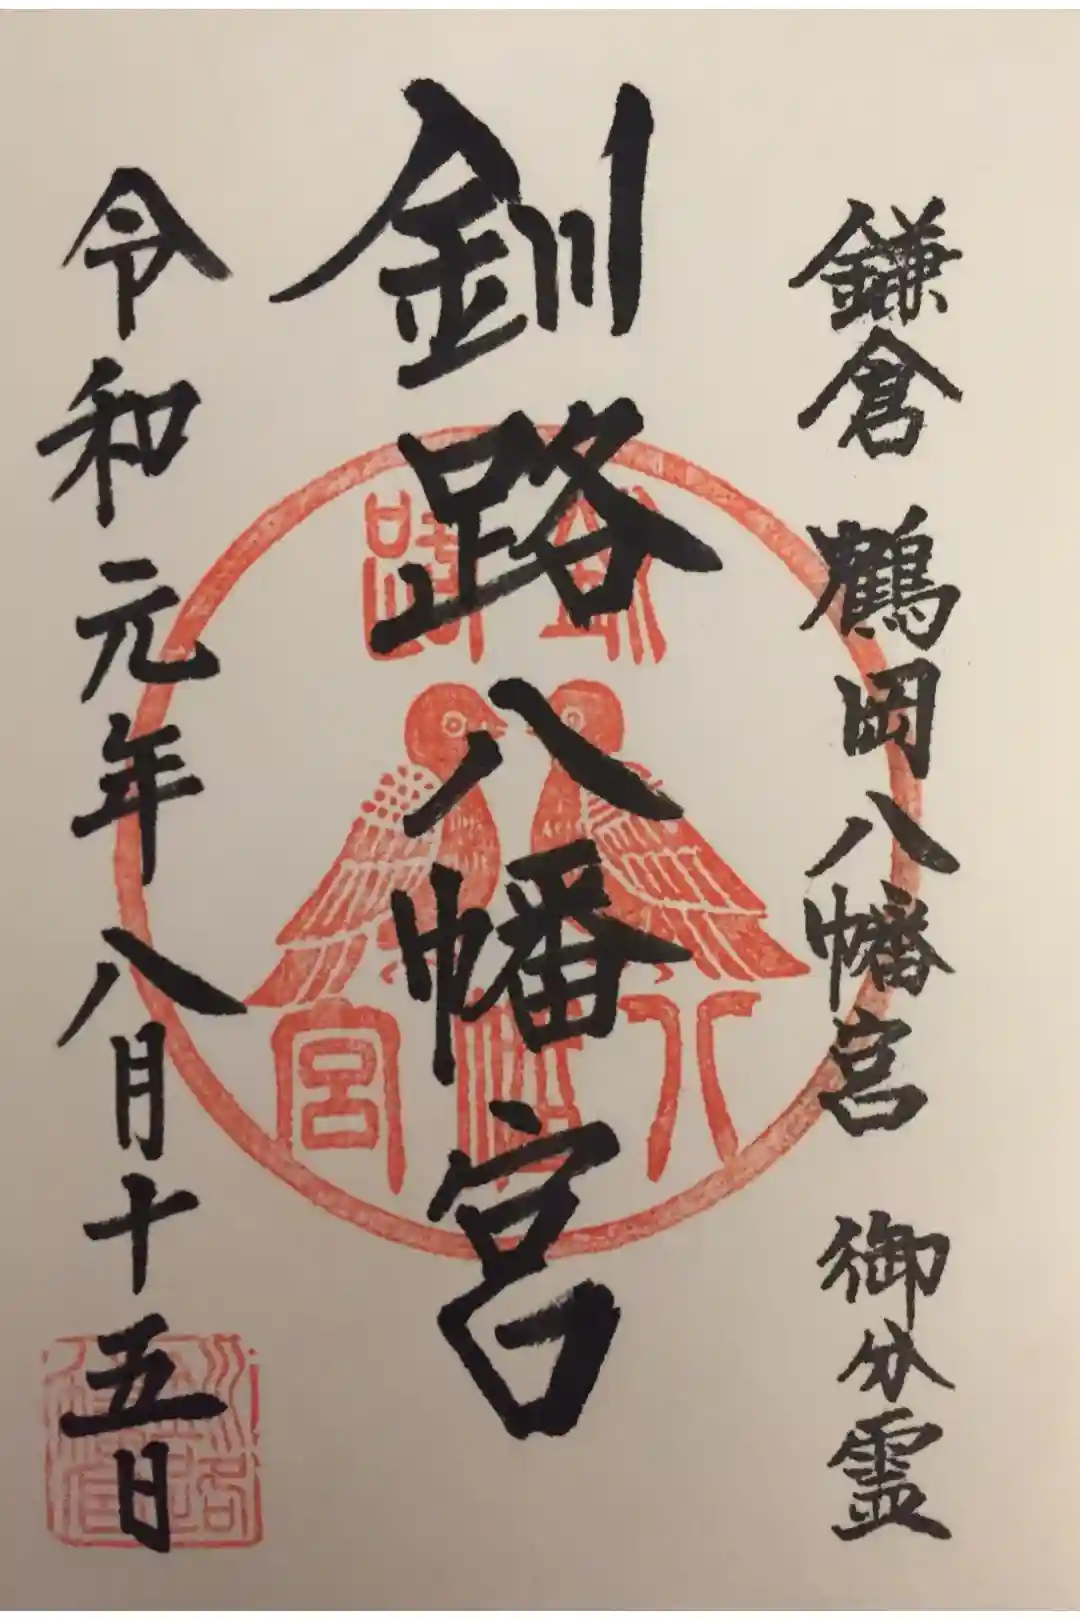 鎌倉 鶴岡八幡宮 御分霊
釧路八幡宮
釧路
八幡宮
令和元年八月十五日